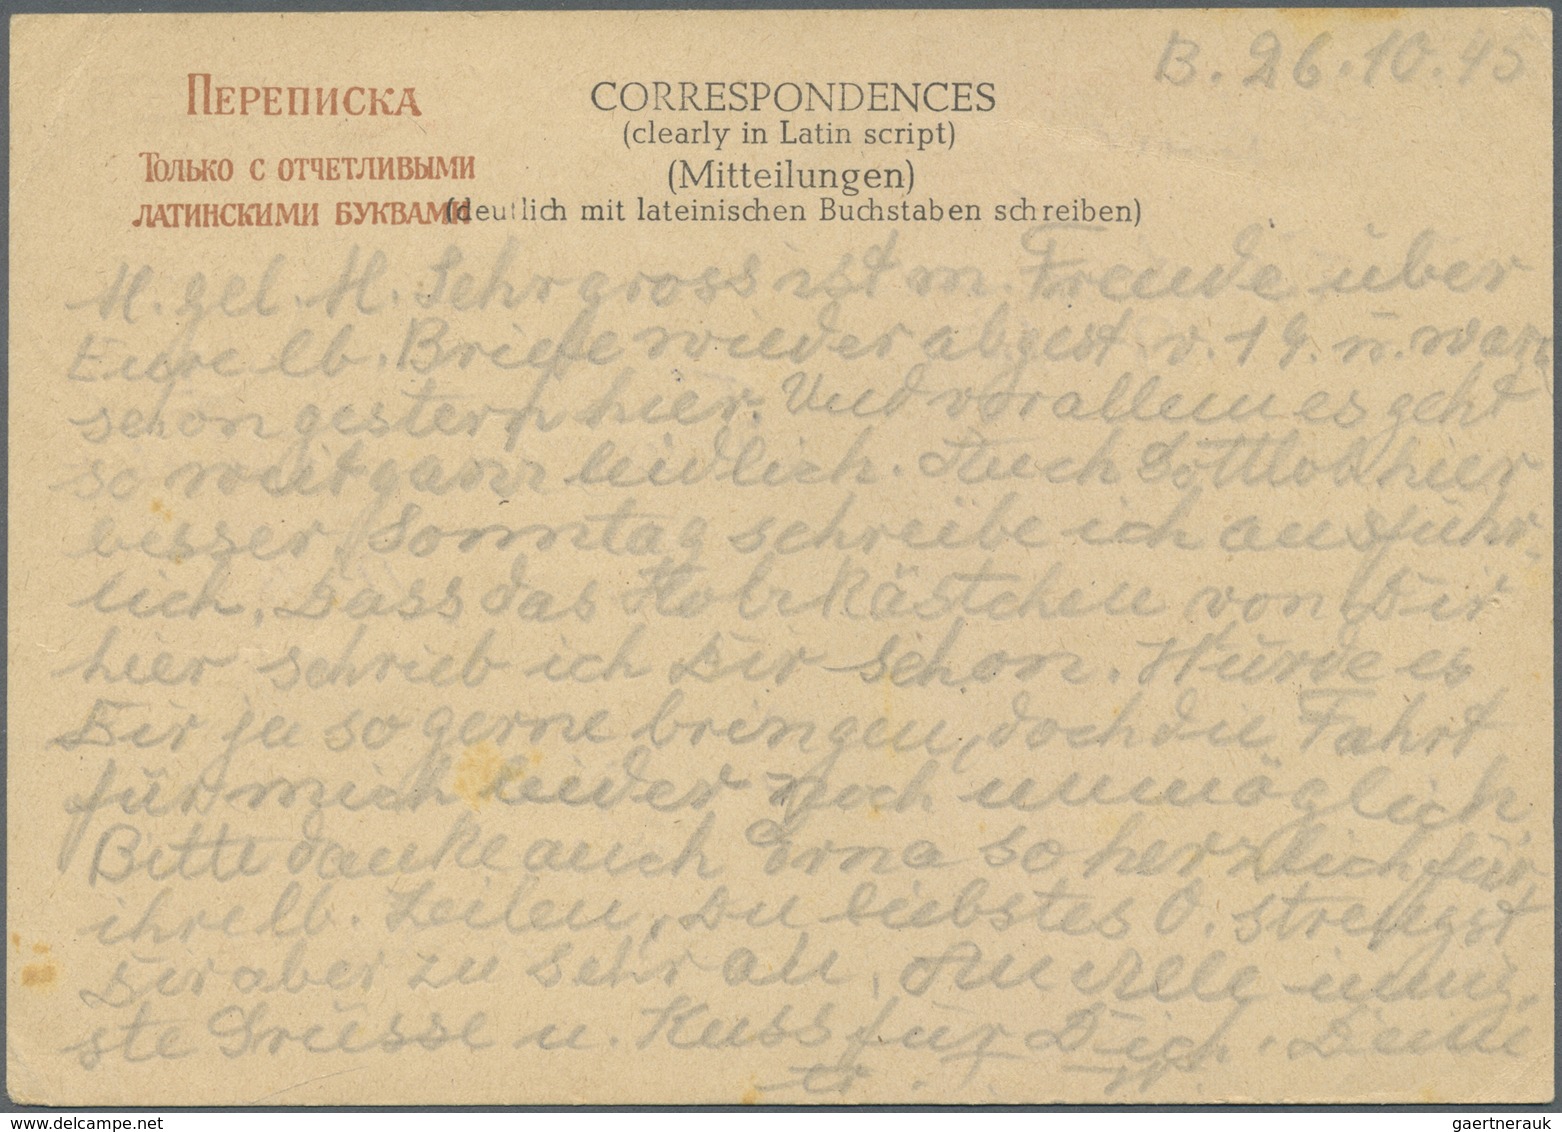 B. 26.10.45
ПЕРЕПИСКА
ТОЛЬКО С ОТЧЕТЛИВЫМИ
ЛАТИНСКИМИ БУКВАМИ
CORRESPONDENCES
(clearly in Latin script)
(Mitteilungen)
(deutlich mit lateinischen Buchstaben schreiben)
M. gel. M. Sehr gross ist m. Freude über
Eure lb. Briefe wieder abgest v. 19. u. waren
schon gestern hier. Und vor allem es geht
so weit ganz leidlich. Auch Gottlob hier
besser. Sonntag schreibe ich ausführ-
lich. Dass das Holzkästchen von Dir
hier schrieb ich Dir schon. Würde es
Dir ja so gerne bringen, doch die Fahrt
für mich leider noch unmöglich
Bitte danke auch Erna so herzlich für
ihre lb. Zeilen, Du liebstes O. strengst
Dir aber zu sehr an. An Alle innig-
ste Grüsse u. Kuss für Dich. Deine
gaertnerauk @ delcampe.net